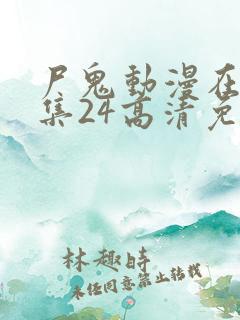 尸鬼動漫在
集24高清免
林趣時
未經同意禁止轉載